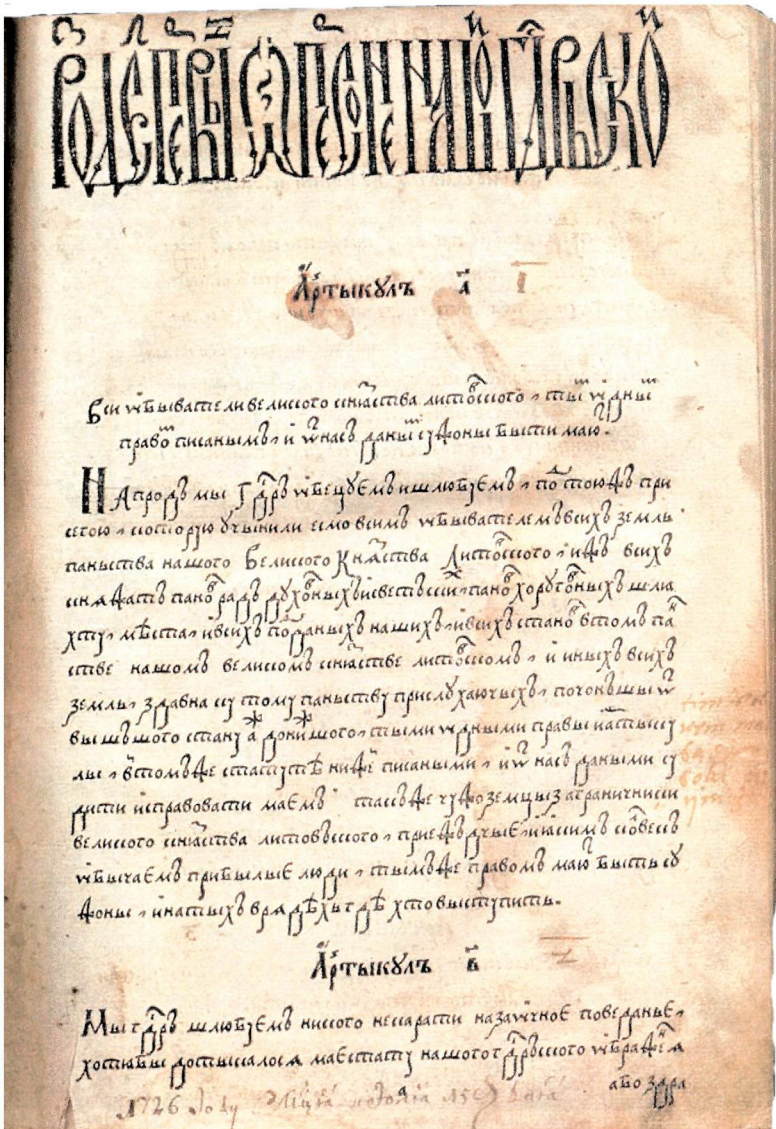 РОЗДЕЛ ПЕРВЫЙ Ѡ ПЕРСОНЕ НАШОЙ ГДРЬСКОЙ
Артыкулъ а҃ I
Вси ѡбыватели великого кнѧзства литовского, тым ѡдным
правом писанымъ, и ѡт нас даным сужоны быти мают.
Напродъ мы Гдръ ѡбецуемъ и шлюбуемъ, под тою жъ при
сегою, которую учынили есмо всимъ ѡбывателемъ всихъ земль
паньства нашого Великого Кнѧзства Литовского, ижъ всихъ
кнѧжатъ панов радъ духовныхъ и светских, панов хоруговныхъ шлѧ
хту, мѣста, и всихъ подданыхъ нашихъ, и всихъ станов втомъ пан
стве нашомъ великомъ кнѧзстве литовскомъ, и иныхъ всихъ
земль, здавна ку тому паньству прислухаючыхъ, почоншы ѡт
вышъшого стану аж до нижшого, тыми ѡдными правы и артыку
лы, втомъже статутѣ ниже писаными, и ѡт насъ даными су
дити и справовати маемъ. такъже чужоземцы заграничники
великого кнѧзства литовъского, приеждчые, и ѧкимъ колвекъ
ѡбычаемъ прибылые люди, тымъже правомъ мают быть су
жоны, и на тыхъ врѧдехъ где хто выступить.
Артыкулъ в҃
Мы гдръ шлюбуемъ никого не карати на заѡчное поведанье,
хотѧ бы се дотыкало маестату нашого гдръского ѡбраженѧ
або здра
1726